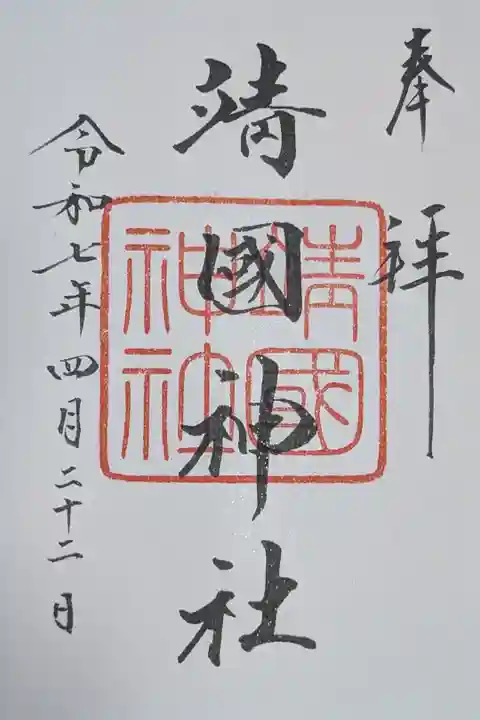 奉拝
靖國神社
靖國神社
令和七年四月二十二日